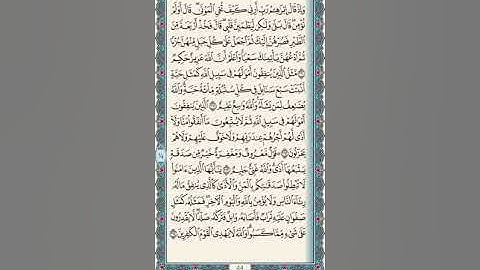 وَإِذْ قَالَ إِبْرَٰهِـۧمُ رَبِّ أَرِنِى كَيْفَ تُحْىِ ٱلْمَوْتَىٰ ۖ قَالَ أَوَلَمْ
تُؤْمِن ۖ قَالَ بَلَىٰ وَلَٰكِن لِّيَطْمَئِنَّ قَلْبِى ۖ قَالَ فَخُذْ أَرْبَعَةً مِّنَ
ٱلطَّيْرِ فَصُرْهُنَّ إِلَيْكَ ثُمَّ ٱجْعَلْ عَلَىٰ كُلِّ جَبَلٍ مِّنْهُنَّ جُزْءًا
ثُمَّ ٱدْعُهُنَّ يَأْتِينَكَ سَعْيًا ۚ وَٱعْلَمْ أَنَّ ٱللَّهَ عَزِيزٌ حَكِيمٌ
۝ مَّثَلُ ٱلَّذِينَ يُنفِقُونَ أَمْوَٰلَهُمْ فِى سَبِيلِ ٱللَّهِ كَمَثَلِ حَبَّةٍ
أَنۢبَتَتْ سَبْعَ سَنَابِلَ فِى كُلِّ سُنۢبُلَةٍ مِّا۟ئَةُ حَبَّةٍ ۗ وَٱللَّهُ
يُضَٰعِفُ لِمَن يَشَآءُ ۗ وَٱللَّهُ وَٰسِعٌ عَلِيمٌ ۝ ٱلَّذِينَ يُنفِقُونَ
أَمْوَٰلَهُمْ فِى سَبِيلِ ٱللَّهِ ثُمَّ لَا يُتْبِعُونَ مَآ أَنفَقُوا۟ مَنًّا وَلَآ
أَذًى ۙ لَّهُمْ أَجْرُهُمْ عِندَ رَبِّهِمْ وَلَا خَوْفٌ عَلَيْهِمْ وَلَا هُمْ
يَحْزَنُونَ ۝ قَوْلٌ مَّعْرُوفٌ وَمَغْفِرَةٌ خَيْرٌ مِّن صَدَقَةٍ
يَتْبَعُهَآ أَذًى ۗ وَٱللَّهُ غَنِىٌّ حَلِيمٌ ۝ يَٰٓأَيُّهَا ٱلَّذِينَ ءَامَنُوا۟
لَا تُبْطِلُوا۟ صَدَقَٰتِكُم بِٱلْمَنِّ وَٱلْأَذَىٰ كَٱلَّذِى يُنفِقُ مَالَهُۥ
رِئَآءَ ٱلنَّاسِ وَلَا يُؤْمِنُ بِٱللَّهِ وَٱلْيَوْمِ ٱلْـَٔاخِرِ ۖ فَمَثَلُهُۥ كَمَثَلِ
صَفْوَانٍ عَلَيْهِ تُرَابٌ فَأَصَابَهُۥ وَابِلٌ فَتَرَكَهُۥ صَلْدًا ۖ لَّا يَقْدِرُونَ
عَلَىٰ شَىْءٍ مِّمَّا كَسَبُوا۟ ۗ وَٱللَّهُ لَا يَهْدِى ٱلْقَوْمَ ٱلْكَٰفِرِينَ
44